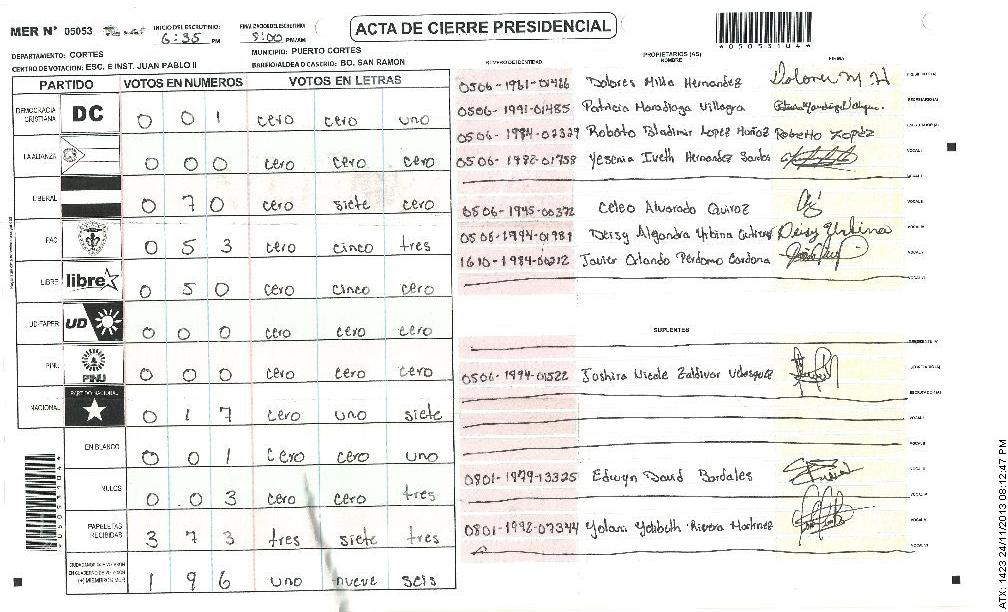 MER N° 05053
INICIO DEL ESCRUTINIO
6:35 PM
FINALIZACION DEL ESCRUTINIO
8:00 PM/AM
ACTA DE CIERRE PRESIDENCIAL
DEPARTAMENTO: CORTES
MUNICIPIO: PUERTO CORTES
CENTRO DE VOTACION: ESC. E INST. JUAN PABLO II
BARRIO/ALDEA O CASERIO: BO. SAN RAMON
PARTIDO VOTOS EN NUMEROS VOTOS EN LETRAS
DEMOCRACIA CRISTIANA DC 0 0 1 cero cero uno
LA ALIANZA 0 0 0 cero cero cero
LIBERAL 0 7 0 cero siete cero
PAC 0 5 3 cero cinco tres
LIBRE libre 0 5 0 cero cinco cero
UD-FAPER UD 0 0 0 cero cero cero
PINU PINU 0 0 0 cero cero cero
NACIONAL PARTIDO NACIONAL 0 1 7 cero uno siete
EN BLANCO 0 0 1 cero cero uno
NULOS 0 0 3 cero cero tres
PAPELETAS RECIBIDAS 3 7 3 tres siete tres
(+) MIEMBROS MER 1 9 6 uno nueve seis
NUMERO DE IDENTIDAD
PROPIETARIOS (AS)
NOMBRE
FIRMA
0506-1961-01466 Dolores Milla Hernandez Dolores M H
0506-1991-01485 Patricia Maradiaga Villagra
0506-1984-02329 Roberto Bladimir Lopez Muñoz Roberto Lopez
0506-1982-01758 Yesenia Iveth Hernandez Santos VOCAL I
0506-1945-00372 Celeo Alvarado Quiroz
0506-1994-01981 Deisy Alejandra Urbina Gutierrez Deisy Urbina
1610-1984-00212 Javier Orlando Perdomo Cardona
SUPLENTES
0506-1994-01522 Joshira Nicole Zaldivar Velasquez
0801-1979-13325 Edwyn David Bardales
0801-1992-07344 Yolani Yelibeth Rivera Martinez
ATX: 1423 24/11/2013 08:12:47 PM